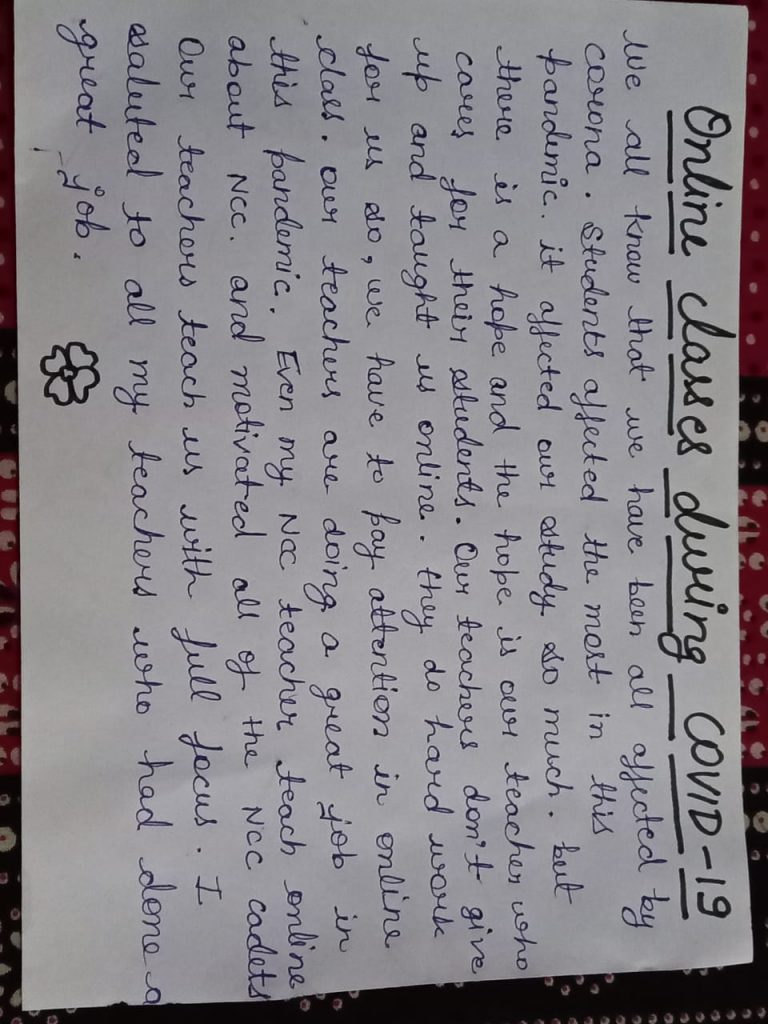 Online classes during COVID-19
We all know that we have been all affected by
corona. Students affected the most in this
pandemic. it affected our study so much. but
there is a hope and the hope is our teacher who
cares for their students. Our teachers don't give
up and taught us online. they do hard work
for us so, we have to pay attention in online
class. our teachers are doing a great job in
this pandemic. Even my NCC teacher teach online
about NCC. and motivated all of the NCC cadets
Our teachers teach us with full focus. I
saluted to all my teachers who had done a
great job.